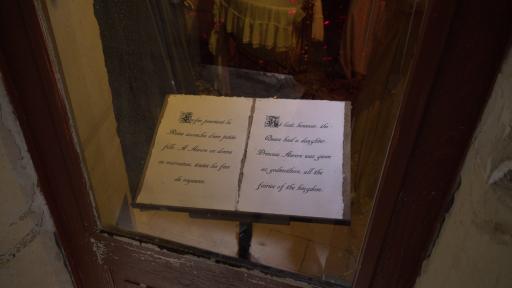 Enfin pourtant la
Reine accoucha d'une petite
fille. A Aurore on donna
en marraines, toutes les fées
du royaume.
At last, however, the
Queen had a daughter.
Princess Aurora was given
as godmothers, all the
fairies of the kingdom.